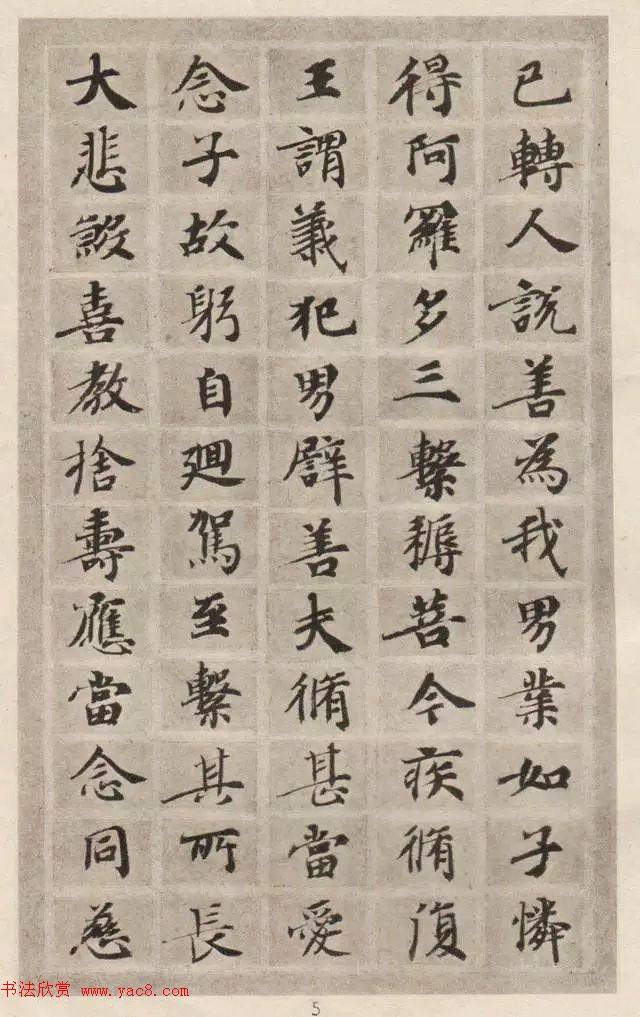 已轉人說善為我男業如子憐
得阿羅多三繫耨菩今疾脩復
王謂義犯男辟善夫脩甚當愛
念子故躬自廻駕至繫其所長
大悲發喜教捨壽應當念同慈
书法欣赏 www.yac8.com
5